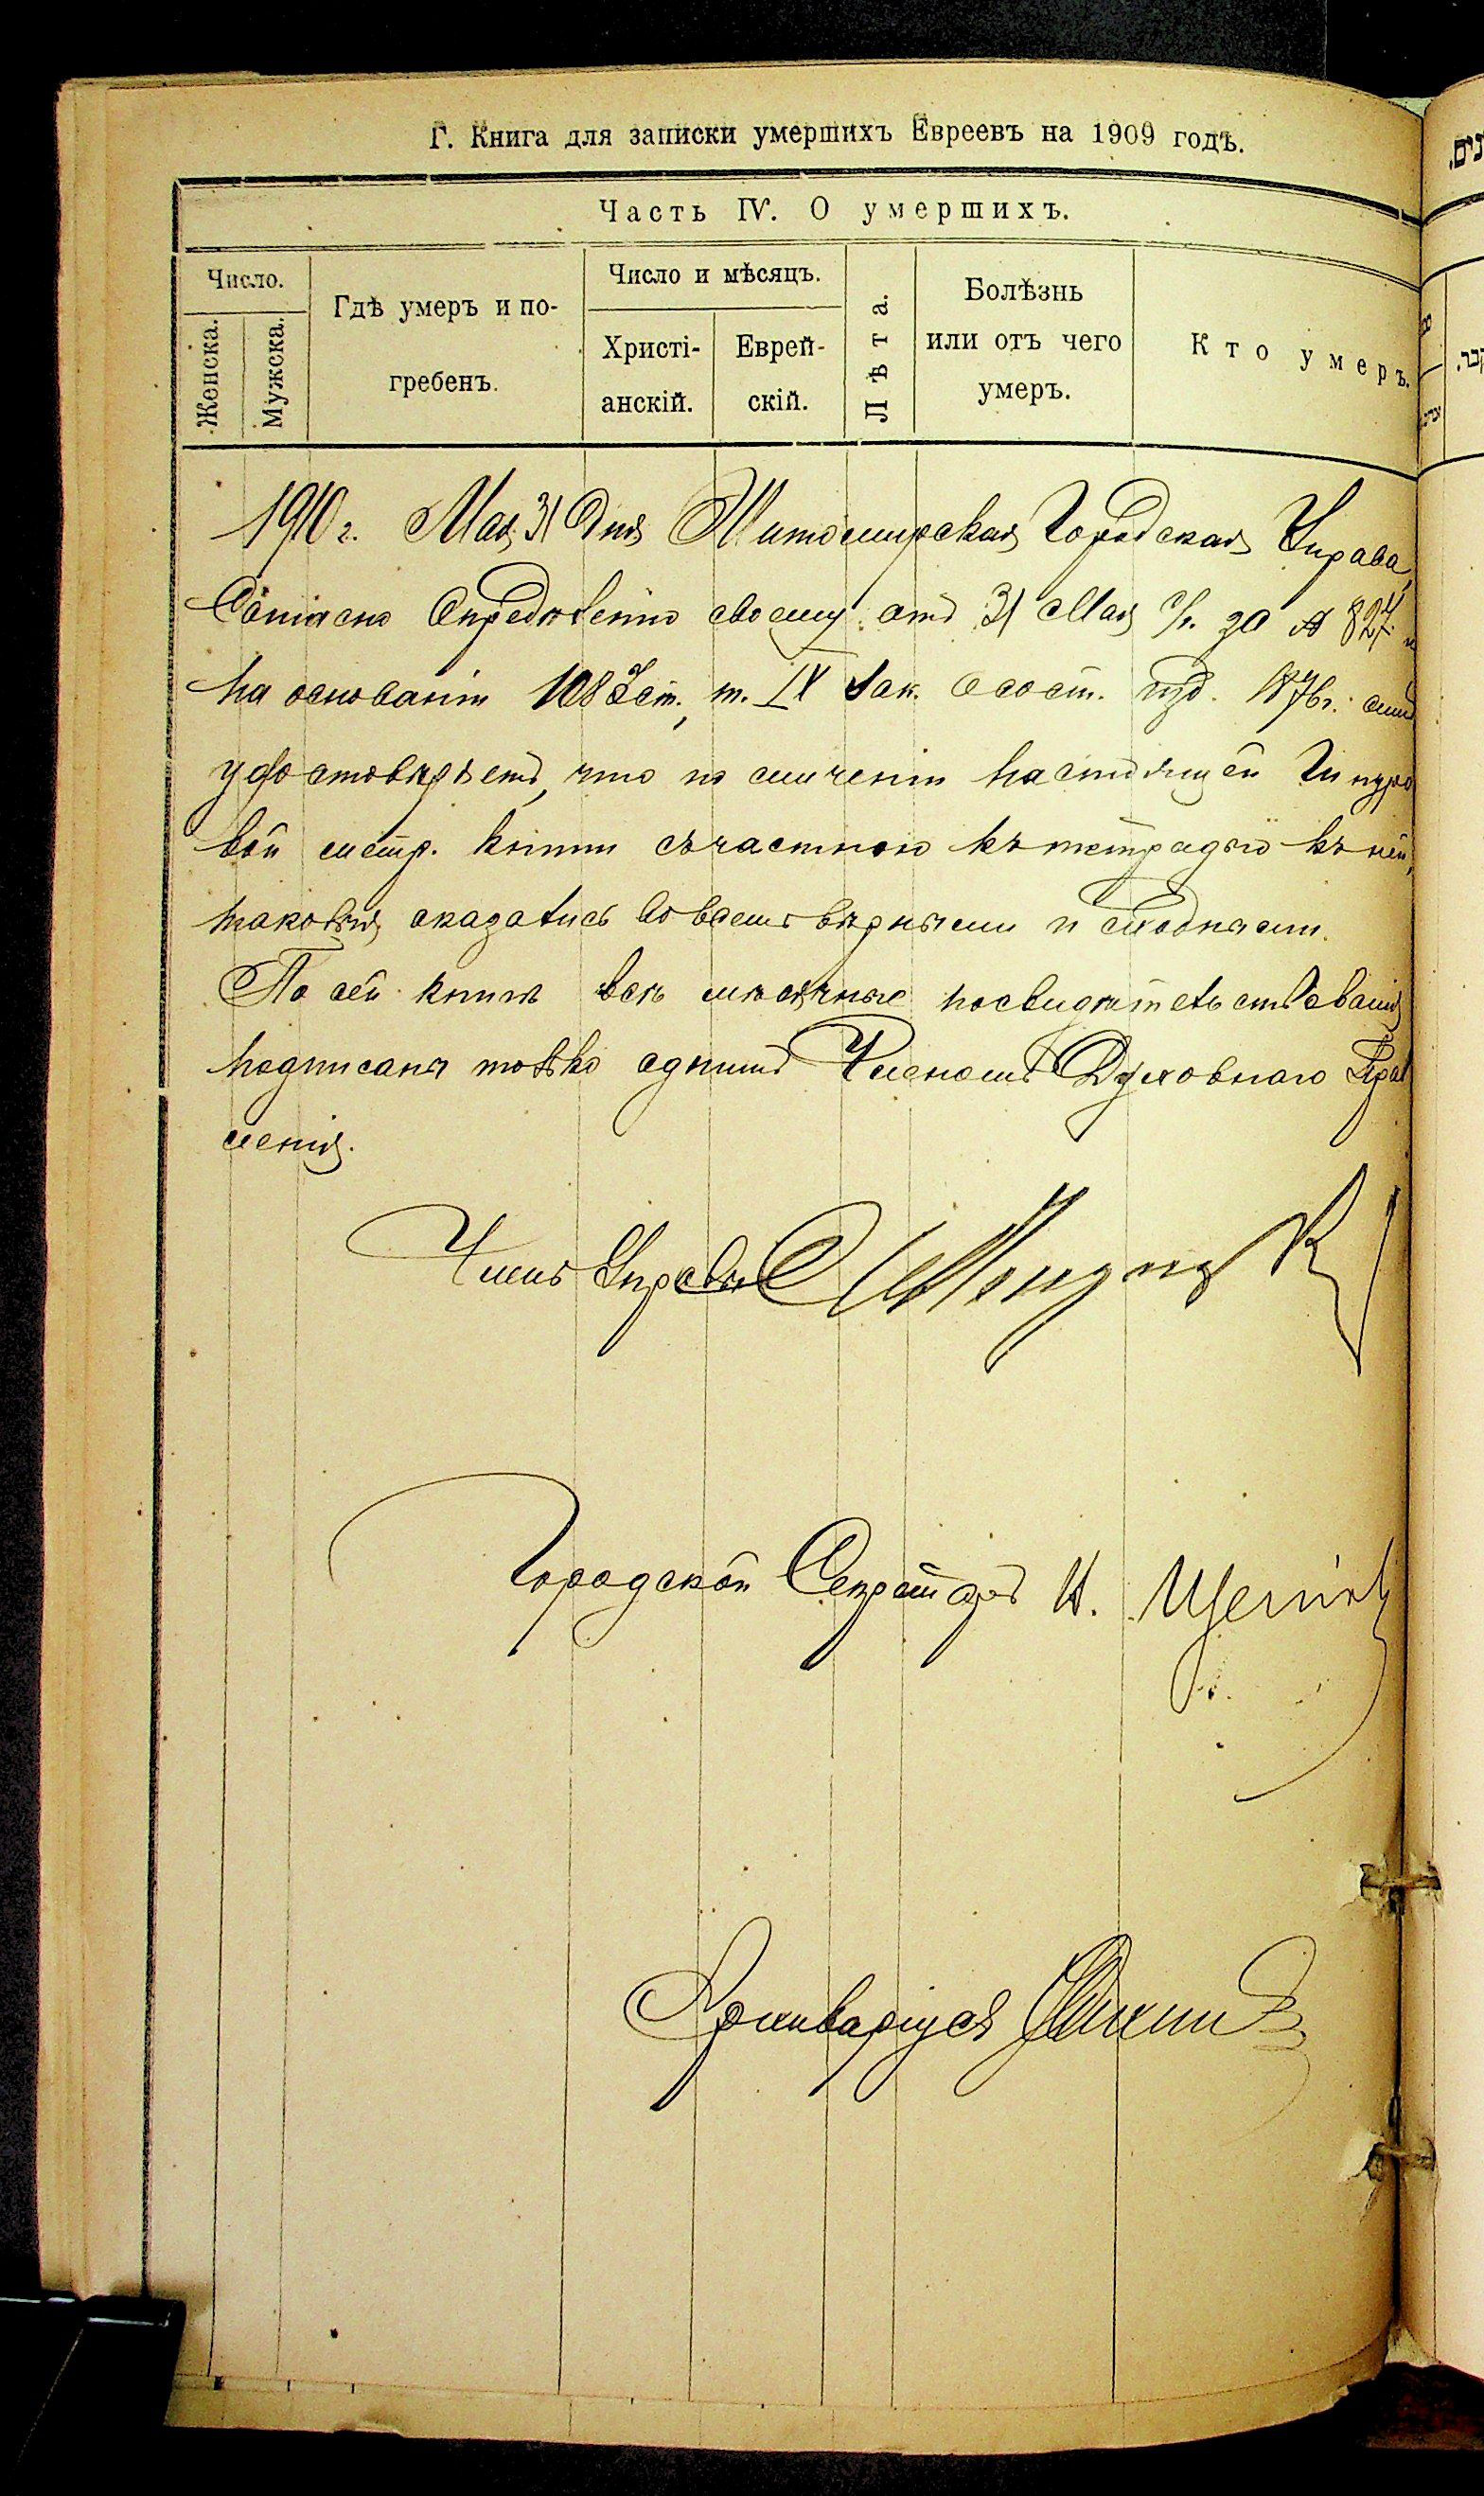 Г. Книга для записки умершихъ Евреевъ на 1909 годъ.
Часть IV. О умершихъ.
Число.
Женска.
Мужска.
Гдѣ умеръ и по-
гребенъ.
Число и мѣсяцъ.
Христі-
анскій.
Еврей-
скій.
Лѣта.
Болѣзнь
или отъ чего
умеръ.
Кто умеръ.
1910 г. Мая 31 дня Житомирская Городская Управа,
Согласно Опредѣленію своему отъ 31 Мая с/г. за № 827
на основаніи 1082 ст., т. IX Зак. о сост. изд. 1876 г. симъ
удостовѣряетъ, что по сличеніи настоящей шнуро
вой метр. книги съ частною къ тетрадью къ ней,
таковыя оказались во всемъ вѣрными и сходными.
По сей книгѣ всѣ мѣсячные посвидѣтельствованія
подписаны только однимъ Членомъ Духовнаго Прав
ленія.
Членъ Управы
Городской Секретарь И.
Архиваріусъ